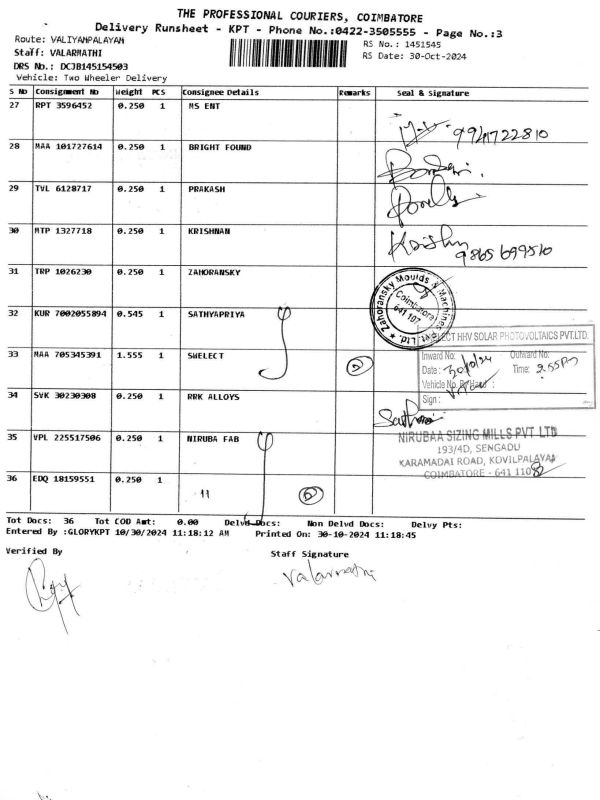 THE PROFESSIONAL COURIERS, COIMBATORE
Delivery Runsheet - KPT - Phone No.:0422-3505555 - Page No.:3
Route: VALIYAMPALAYAM
RS No.: 1451545
Staff: VALARMATHI
RS Date: 30-Oct-2024
DRS No.: DCJB145154503
Vehicle: Two Wheeler Delivery
S No Consignment No Weight PCS Consignee Details Remarks Seal & Signature
27 RPT 3596452 0.250 1 MS ENT
9941722810
28 MAA 101727614 0.250 1 BRIGHT FOUND
29 TVL 6128717 0.250 1 PRAKASH
30 MTP 1327718 0.250 1 KRISHNAN
Krishn
9865699510
31 TRP 1026230 0.250 1 ZAHORANSKY
Zahoransky Moulds & Machines Pvt. Ltd. ★
Coimbatore
641 107
32 KUR 7002055894 0.545 1 SATHYAPRIYA
33 MAA 705345391 1.555 1 SWELECT
2
SELECT HHV SOLAR PHOTOVOLTAICS PVT.LTD.
Inward No: Outward No:
Date: 30/10/24 Time: 2.55Pm
Vehicle No.
Sign :
34 SVK 30230308 0.250 1 RRK ALLOYS
35 VPL 225517506 0.250 1 NIRUBA FAB
NIRUBAA SIZING MILLS PVT LTD
193/4D, SENGADU
KARAMADAI ROAD, KOVILPALAYAM
COIMBATORE - 641 110
36 EDQ 18159551 0.250 1 11
6
Tot Docs: 36 Tot COD Amt: 0.00 Delvd Docs: Non Delvd Docs: Delvy Pts:
Entered By :GLORYKPT 10/30/2024 11:18:12 AM Printed On: 30-10-2024 11:18:45
Verified By
Staff Signature
Valarmathi